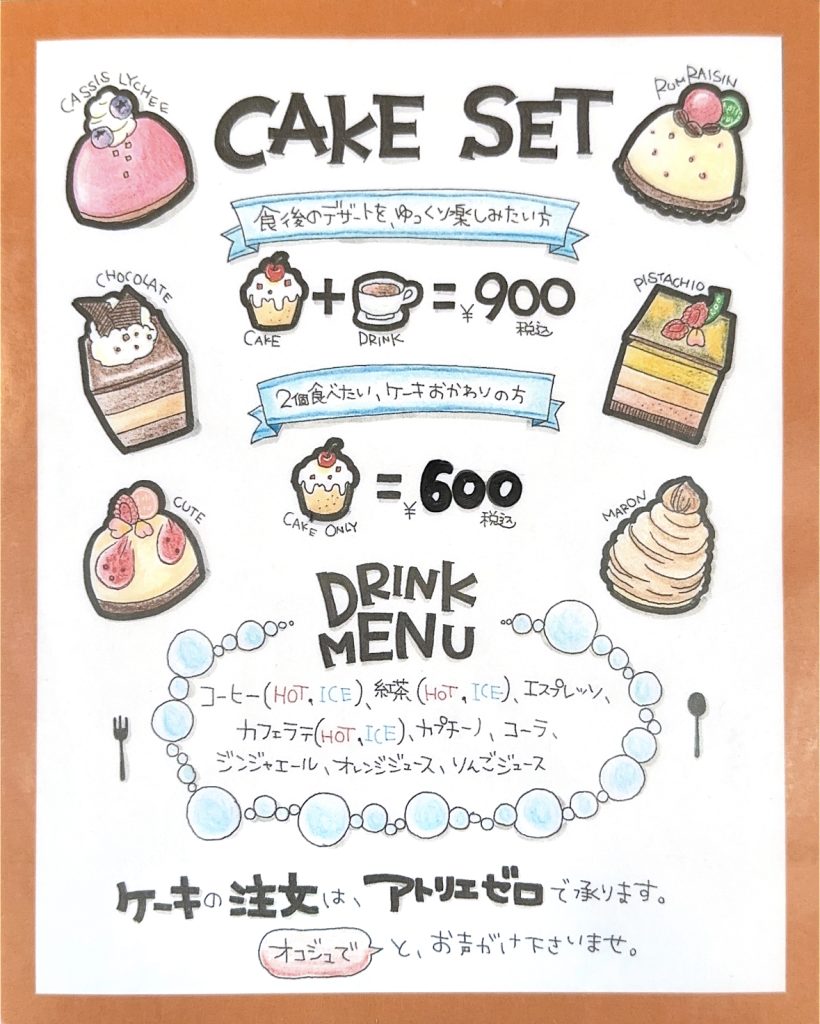 CASSIS LYCHEE
CAKE SET
RUM RAISIN
食後のデザートを、ゆっくり楽しみたい方
CHOCOLATE
PISTACHIO
+ = ¥900
CAKE DRINK 税込
2個食べたい、ケーキおかわりの方
CUTE
MARON
= ¥600
CAKE ONLY 税込
DRINK
MENU
コーヒー(HOT,ICE)、紅茶(HOT,ICE)、エスプレッソ、
カフェラテ(HOT,ICE)、カプチーノ、コーラ、
ジンジャエール、オレンジジュース、りんごジュース
ケーキの注文は、アトリエゼロで承ります。
オコジュで と、お声がけ下さいませ。